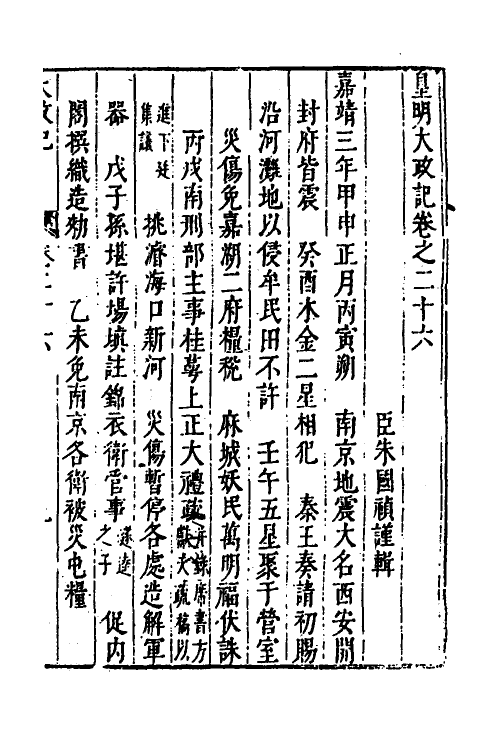 皇明大政記卷之二十六
臣朱國禎謹輯
嘉靖三年甲申正月丙寅朔　南京地震大名西安開
封府皆震　癸酉木金二星相犯　秦王奏請初賜
沿河灘地以侵牟民田不許　壬午五星聚于營室
災傷免嘉湖二府糧稅　麻城妖民萬明福伏誅
丙戌南刑部主事桂萼上正大禮疏并錄席書方獻夫疏稿以
進下廷集議　挑濬海口新河　災傷暫停各處造解軍
器　戊子孫堪許場填註錦衣衛管事遂逵之子　促内
閣撰織造勑書　乙未免南京各衛被災屯糧
大政記　卷二十六　一